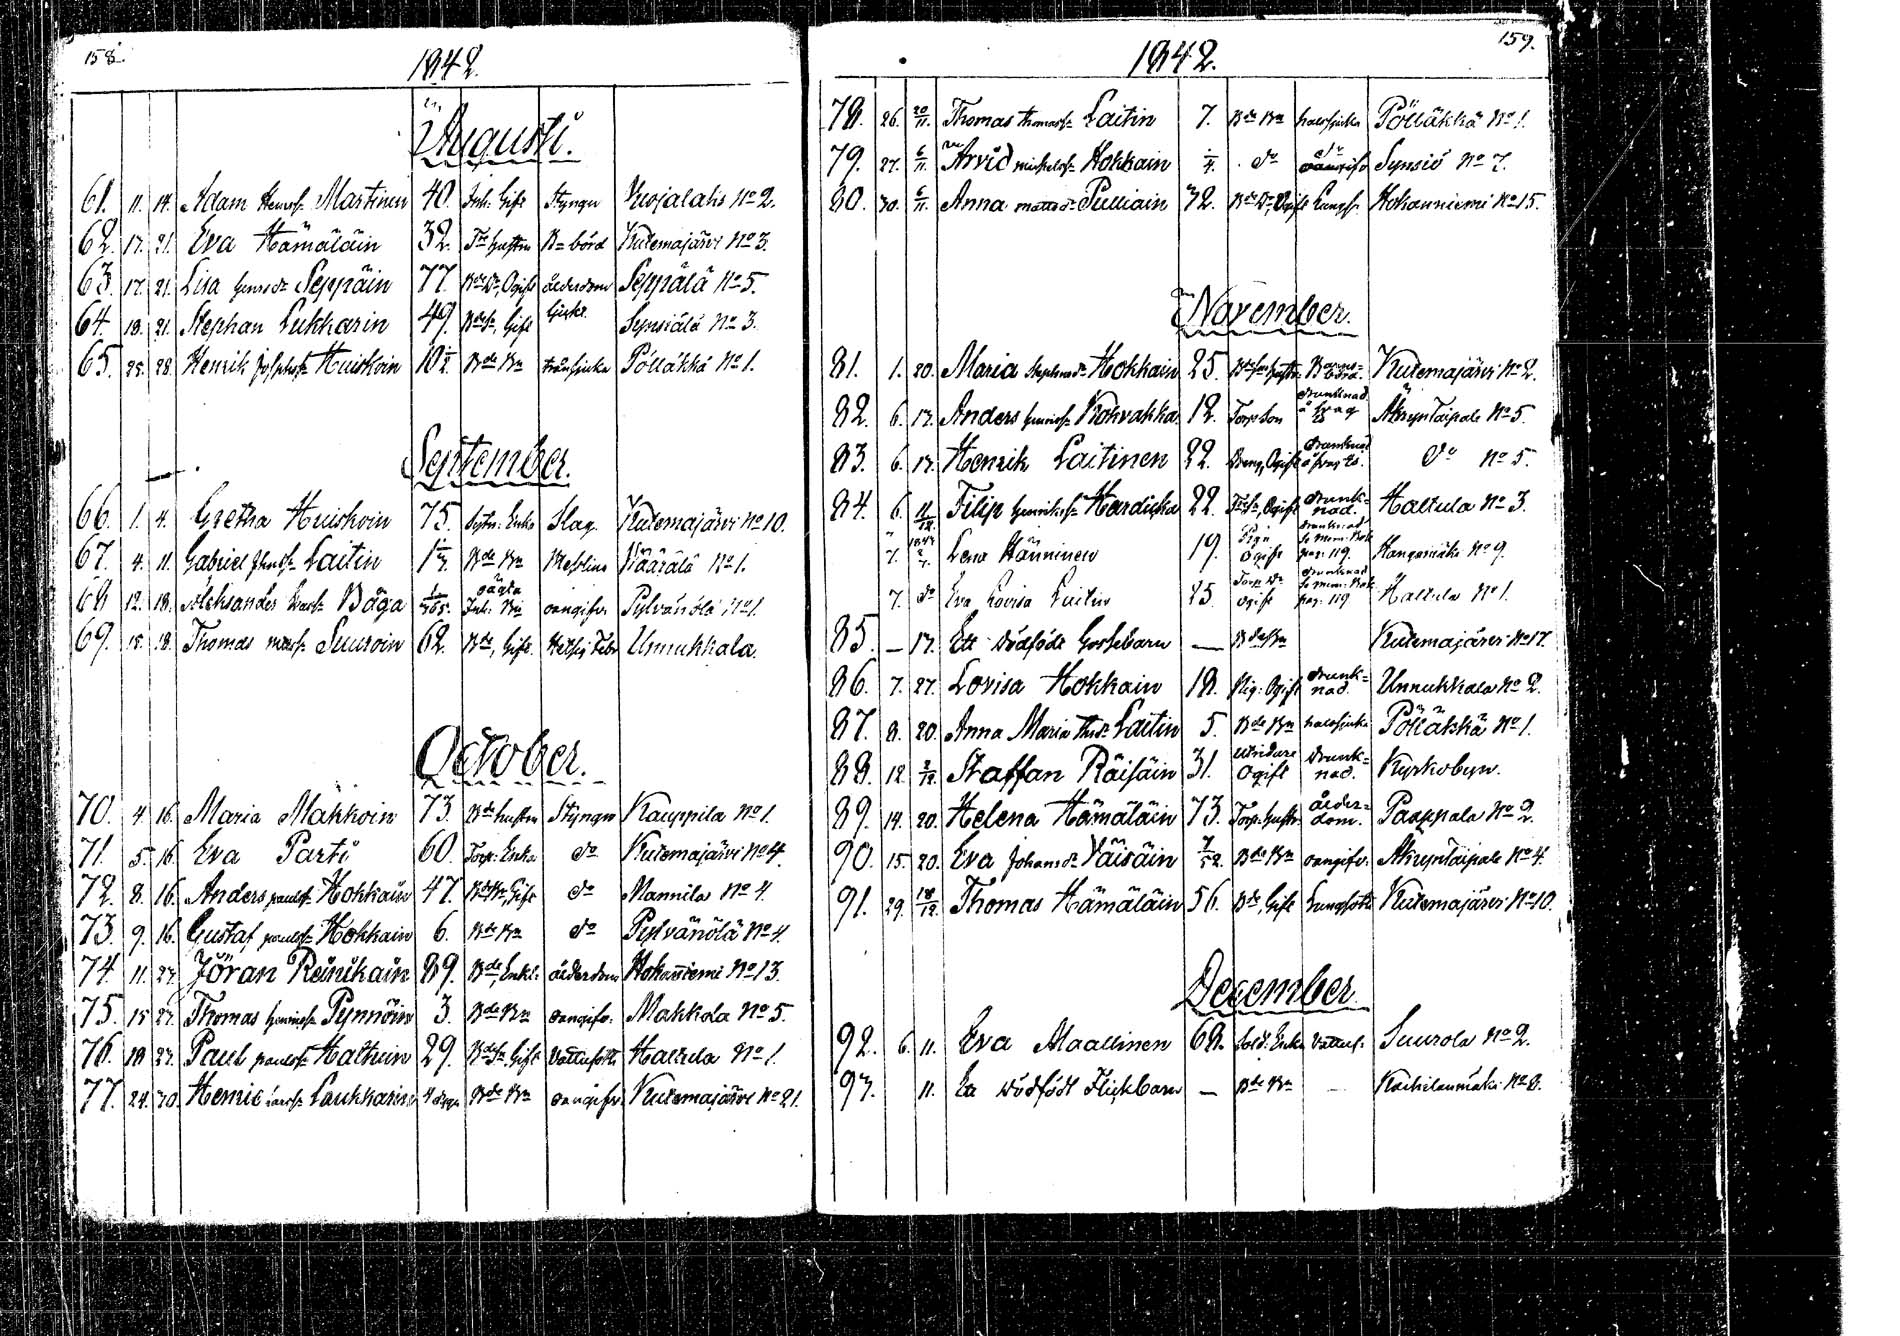 158.
1842.
Augusti.
61. 11. 14. Adam Henrss. Martinen 40. Inh. Gift Styngn Vuojalahti No 2.
62. 17. 21. Eva Hämäläin 32. Tr. hustru Bnbörd Kutemajärvi No 3.
63. 17. 21. Lisa Henrsdr Seppäin 77. Bde Dr, Ogift ålderdom Seppälä No 5.
64. 18. 21. Stephan Lukkarin 49. Bde Sn, Gift Synsiälä No 3.
65. 25. 28. Henrik Josephss. Huiskoin 10 1/2 Bde Bn Pölläkkä No 1.
September.
66. 1. 4. Gretha Huiskoin 75. Enka Slag. Kutemajärvi No 10.
67. 4. 11. Gabriel Laitin Bde Bn Messling Väärälä No 1.
68 12. 18. Aleksander Båga 1/365. Inh. Bn oangifv. Pylvänälä No 1.
69. 15. 18. Thomas matss. Suuroin 62. Bde, Gift. Hetsig Feber Unnukkala.
October.
70. 4. 16. Maria Makkoin 73. Bde hustru Styngn Kauppila No 1.
71. 5. 16. Eva Parti 60. Torp. Enka do Kutemajärvi No 4.
72. 8. 16. Anders paulss. Hokkain 47. Gift do Mannila No 4.
73. 9. 16. Gustaf paulss. Hokkain 6. Bde Bn do Pylvänälä No 4.
74. 11. 23. Jöran Reinikain 89. Bde, Enkl. ålderdom Hohonniemi No 13.
75. 15 23. Thomas Henricss. Pynnöin 3. Bde Bn oangifv. Makkola No 5.
76. 18 23. Paul paulss. Halttuin 29. Bde Sn. Gift Vattusott Haltula No 1.
77. 24. 30. Henric Laukkarin 4 dygn Bde Bn oangifv. Kutemajärvi No 21.
159.
1842.
78. 26. 20/11. Thomas Thomass. Laitin 7. Bde Bn halssjuka Pölläkkä No 1.
79. 27. 6/11. Arvid mickelss. Hokkain 1/4. do do Synsiö No 7.
80. 30. 6/11. Anna mattsdr Pulliain 32. Bde Dr, Ogift Lungs. Hohonniemi No 15.
November.
81. 1. 20. Maria Stephansdr Hokkain 25. hustru Barnsbörd. Kutemajärvi No 2.
82. 6. 13. Anders Henricss. Kohvakka 12. Torp. Son drunknad å svag is Akryntaipale No 5.
83. 6. 13. Henrik Laitinen 22. Dreng, Ogift drunknad å svag is. do No 5.
84. 6. 11/12. Filip Henrikss. Hardicka 22. Ogift drunknad. Haltula No 3.
7. Lena Hänninen 19. Pign Ogift drunknad Se Mem. Bok pag: 119. Hangasmäki No 9.
7. do Eva Lovisa Laitin 25. Torp. Dr ogift drunknad Se Mem. Bok pag: 119 Haltula No 1.
85. — 13. Ett dödfödt Gossebarn — Bde Bn Kutemajärvi No 17.
86. 7. 27. Lovisa Hokkain 18. Pig. Ogift drunknad. Unnukkala No 2.
87. 8. 20. Anna Maria Thsdr Laitin 5. Bde Bn halssjuka Pölläkkä No 1.
88. 12. 2/12. Staffan Räisäin 31. Ogift drunknad. Kyrkobyn.
89. 14. 20. Helena Hämäläin 73. Torp. hustru ålderdom. Paappala No 2.
90. 15. 20. Eva Johansdr Väisäin 7/52. Bde Bn oangifv. Akryntaipale No 4.
91. 29. 18/12. Thomas Hämäläin 56. Bde, Gift Lungsott Kutemajärvi No 10.
December.
92. 6. 11. Eva Maallinen 68. Sold. Enka Vattus. Suurola No 2.
93. 11. Ett dödfödt Flickbarn — Bde Bn — No 8.